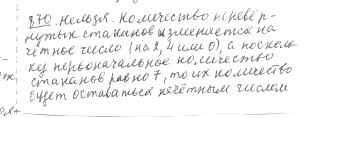 870. Нельзя. Количество перевёр-
нутых стаканов изменяется на
чётное число (на 2, 4 или 0), а посколь-
ку первоначальное количество
стаканов равно 7, то их количество
будет оставаться нечётным числом